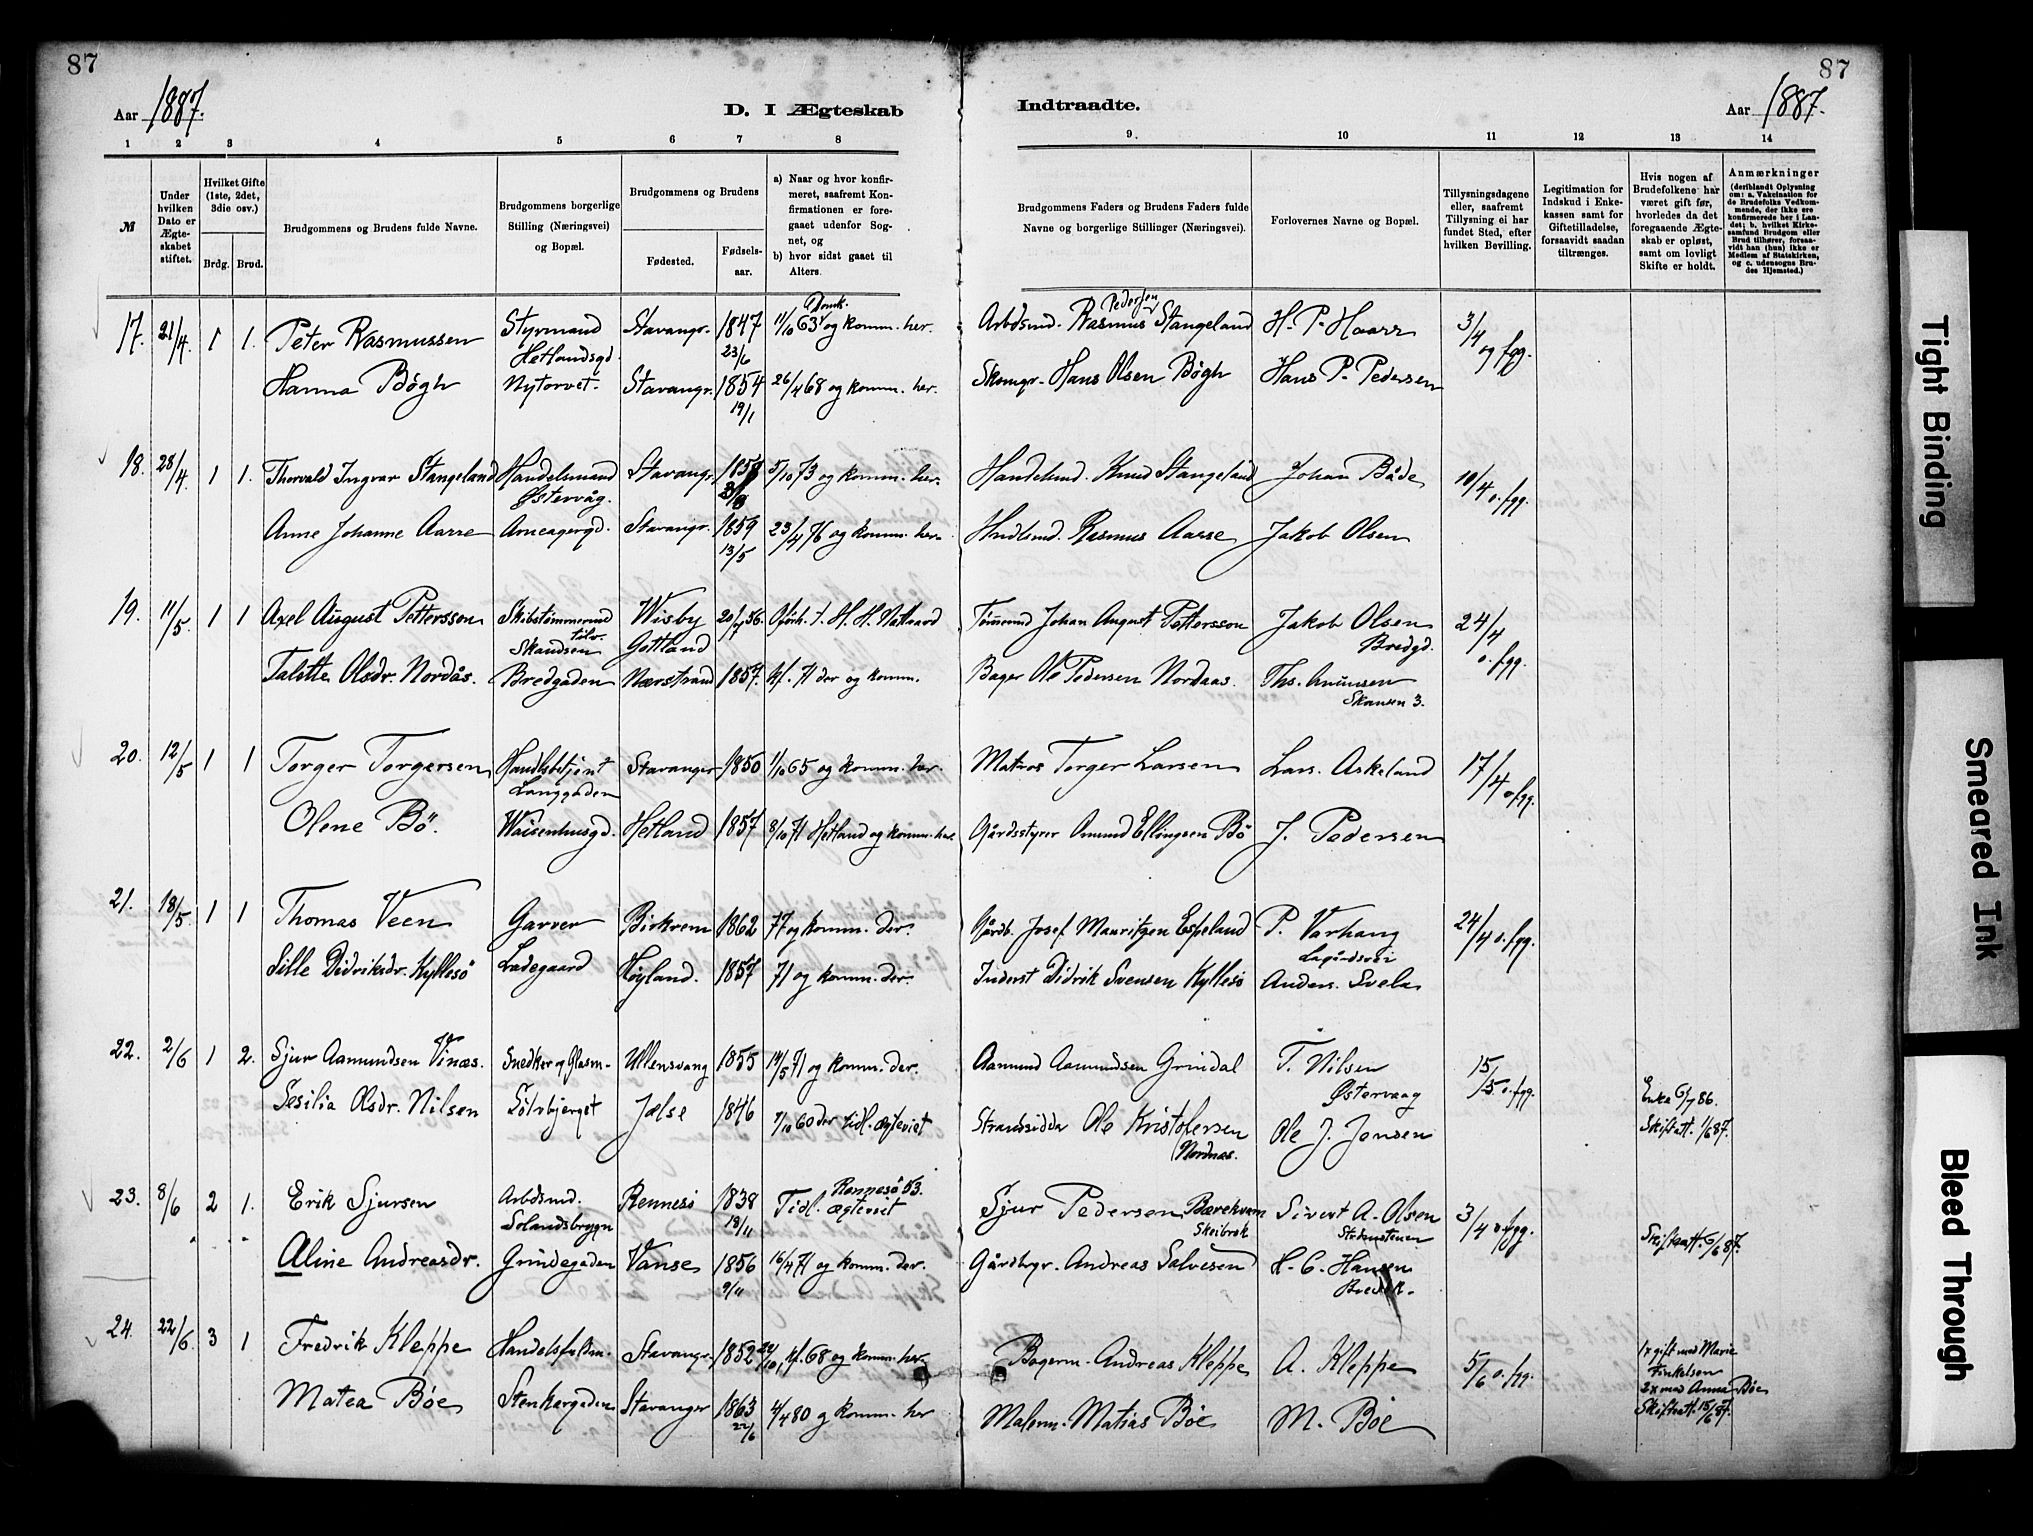 87
87
Aar 1887.
D. I Ægteskab
Indtraadte.
Aar 1887.
1 2 3 4 5 6 7 8 9. 10 11 12 13 14
№
Under hvilken Dato er Ægteskabet stiftet.
Hvilket Gifte (1ste, 2det, 3die osv.)
Brdg. Brud.
Brudgommens og Brudens fulde Navne.
Brudgommens borgerlige Stilling (Næringsvei) og Bopæl.
Brudgommens og Brudens
Fødested.
Fødselsaar.
a) Naar og hvor konfirmeret, saafremt Konfirmationen er foregaaet udenfor Sognet, og
b) hvor sidst gaaet til Alters.
Brudgommens Faders og Brudens Faders fulde Navne og borgerlige Stillinger (Næringsvei).
Forlovernes Navne og Bopæl.
Tillysningsdagene eller, saafremt Tillysning ei har fundet Sted, efter hvilken Bevilling.
Legitimation for Indskud i Enkekassen samt for Giftetilladelse, forsaavidt saadan tiltrænges.
Hvis nogen af Brudefolkene har været gift før, hvorledes da det foregaaende Ægteskab er opløst, samt om lovligt Skifte er holdt.
Anmærkninger
(deriblandt Oplysning om: a. Vakcination for de Brudefolks Vedkommende, der ikke ere konfirmerede her i Landet; b. hvilket Kirkesamfund Brudgom eller Brud tilhører, forsaavidt han (hun) ikke er Medlem af Statskirken, og c. udensogns Brudes Hjemsted.)
17. 21/4. 1 1. Peter Rasmussen Styrmand Hetlandsgd. Stavangr. 1847 23/6 11/10 63 Domk. og komm. her. Arbdsmd. Rasmus Pedersen Stangeland H. P. Haarr 3/4 og fgg.
Hanna Bøgh Nytorvet. Stavangr. 1854 19/1 26/4 68 og komm. her. Skomgr. Hans Olsen Bøgh Hans P. Pedersen
18. 28/4. 1 1. Thorvald Ingvar Stangeland Handelsmand Østervåg. Stavangr. 1858 5/10 73 og komm. her. Handelsmd. Knud Stangeland Johan Både 10/4 o. fgg.
Anne Johanne Aarre Arneagergd. Stavangr. 1859 13/5 23/4 76 og komm. her. Hndlsmd. Rasmus Aarre Jakob Olsen
19. 11/5. 1 1 Axel August Pettersson Skibstømmermd Skandsen Wisby Gottland 20/7 56. H. H. Tømmd Johan August Pettersson Jakob Olsen Bredgd. 24/4 o. fgg.
Talette Olsdr. Nordås. Bredgaden Nærstrand 1857. kf. 71 der og komm. Bager Ole Pedersen Nordaas. Ths. Skansen 3.
20. 12/5 1 1 Torger Torgersen Handlsbetjent Langgaden Stavanger 1850 1/10 65 og komm. her. Matros Torger Larsen Lars. Askeland 17/4 o fgg.
Olene Bö. Waisenhusgd. Hetland 1857 8/10 71 Hetland og komm. her Gårdsstyrer Amund Ellingsen Bö J. Pedersen
21. 18/5. 1 1 Thomas Veen Garver Ladegaard Birkrem 1862 77 og komm. der. Gårdb. Josef Mauritzen Espeland P. Varhaug Lagårdsvei 24/4 o. fgg.
Sille Didriksdr. Kyllesö Høyland. 1857 71 og komm. der. Inderst Didrik Svensen Kyllesö Anders. Svela
22. 2/6 1 2. Sjur Aamundsen Vinæs. Snedker og Glasm. Sölvbjerget Ullensvang 1855 14/5 71 og komm. der. Aamund Aamundsen Grindal T. Nilsen Østervaag 15/5 o. fgg.
Sesilia Olsdr. Nilsen Jælse 1846 7/10 60 der tidl. ægteviet Strandsidder Ole Kristofersen Nordnas. Ole J. Jensen Enke 6/7 86. Skifteatt. 1/6 87.
23. 8/6 2 1. Erik Sjursen Arbdsmd. Solandsbrygn Rennesö 1838 18/11 Tidl. ægteviet Rennesö 53. Sjur Pedersen Bærekvam Skeibrok Sivert A. Olsen 3/4 o fgg.
Aline Andreasdr. Grindegaden Vanse 1856 9/11 16/4 71 og komm. der. Gårdbrgr. Andreas Salvesen H. C. Hansen Bredsk. Skifteatt. 6/6 87.
24. 22/6. 3 1 Fredrik Kleppe Handelsfuldm. Stavangr. 1852 kf. 68 og komm. her. Bagerm. Andreas Kleppe A. Kleppe 5/6 o. fgg. 1x gift med Marie Finkelsen 2x med Anna Bøe Skifteatt. 15/6 87.
Matea Bøe Stenkargaden Stavanger 1863 22/6 4/4 80 og komm. her Malerm. Matias Böe M. Böe
Tight Binding
Smeared Ink
Bleed Through